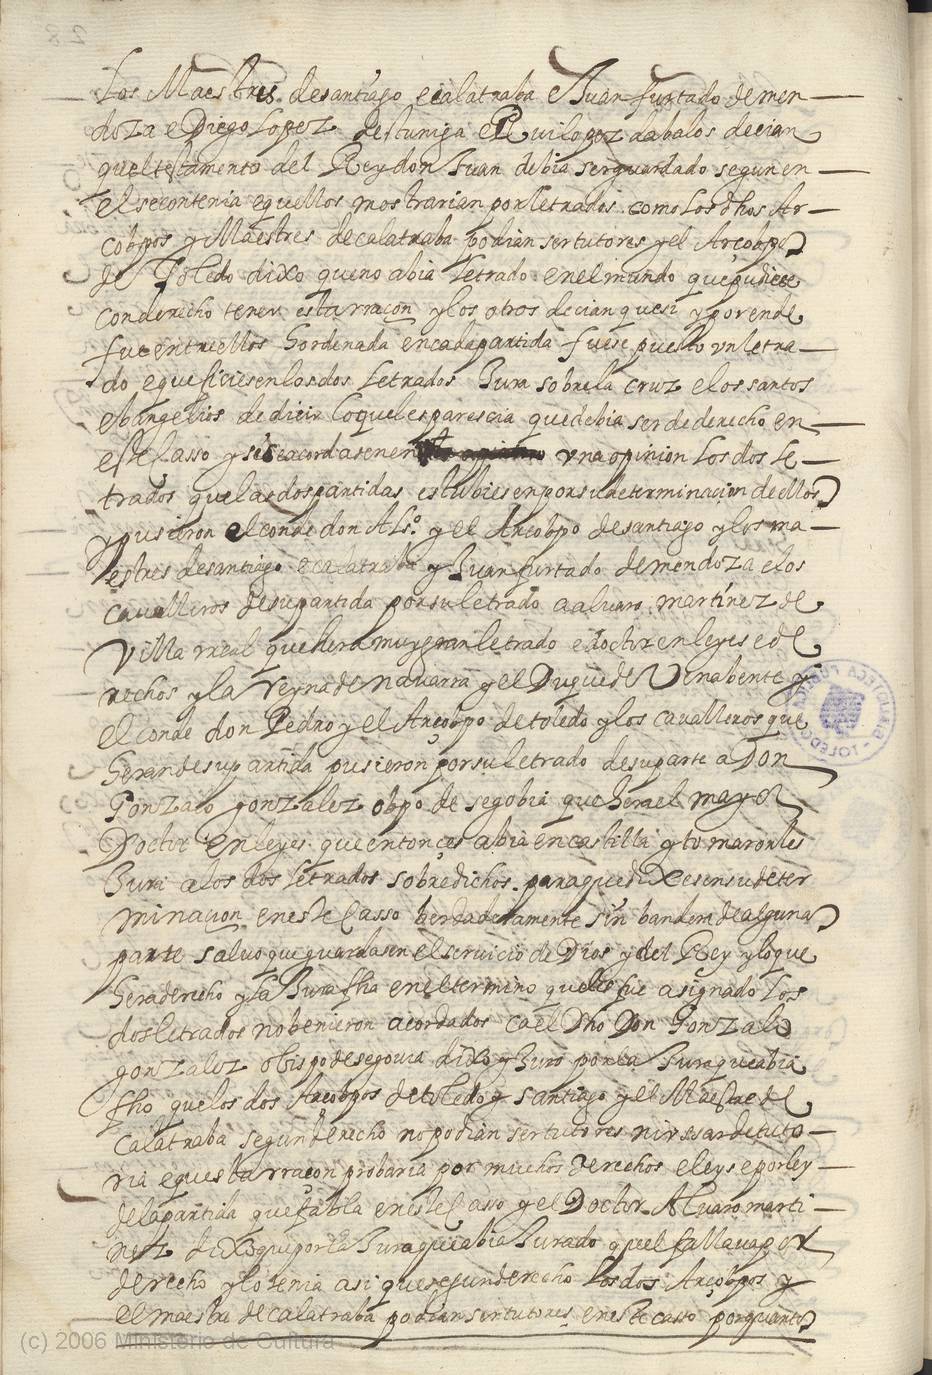 Los Maestres de santiago e calatraba e Juan furtado de men
doza e Diego Lopez destuniga e Rui lopez dabalos decian
quel testamento del Rey don Juan debia ser guardado segun en
el se contenia e quellos mostrarian por letrados como los dhos Ar
cobpos y Maestres de calatraba podian ser tutores y el Arcobpo
de Toledo dixo que no abia letrado en el mundo que pudiese
con derecho tener esta rraçon y los otros decian que si y por ende
fue entre ellos hordenada en cada partida fuese puesto un letra
do e que ficiesen los dos letrados Jura sobre la cruz e los santos
ebangelios de dicir lo que les parescia que debia ser de derecho en
este casso y si se acordasen en una opinion los dos le
trados que las dos partidas estubiesen por su determinacion dellos
y pusieron el conde don Alº. y el Arcobpo de santiago y los ma
estres de santiago e calatraba y Juan furtado de mendoza e los
cavalleros de su partida por su letrado a alvaro martinez de
Villa rreal que hera muy gran letrado e doctor en leyes e de
rechos y la reyna de navarra y el Duque de Venabente y
el conde don Pedro y el Arcobpo de toledo y los cavalleros que
heran de su partida pusieron por su letrado de su parte a Don
Gonzalo gonzalez obpo de segobia que hera el mayor
Doctor en leyes que entonçes abia en castilla y tomaronles
Jura a los dos letrados sobredichos para que dixesen su deter
minacion en este casso berdaderamente sin banderia de alguna
parte salvo que guardasen el servicio de Dios y del Rey y lo que
hera derecho y la Jura fha en el termino que les fue asignado los
dos letrados no benieron acordados ca el Dho Don Gonzalo
gonzalez obispo de segovia dixo y Juro por la Jura que abia
fho que los dos Arcobpos de toledo y santiago y el Maestre de
Calatraba segun derecho no podian ser tutores ni usar de tuto
ria e que esta rraçon probaria por muchos derechos e leys e por ley
de la partida que fabla en este caso y el Doctor Alvaro marti
nez dixo que por la Jura que abia Jurado quel fallava por
derecho y lo tenia asi que segun derecho los dos Arcobpos y
el maestre de calatraba podian ser tutores en este casso por quanto
(c) 2006 Ministerio de Cultura